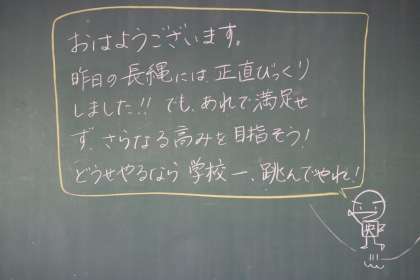 おはようございます。
昨日の長縄には正直びっくり
しました!! でも、あれで満足せ
ず、さらなる高みを目指そう!
どうせやるなら学校一、跳んでやれ!